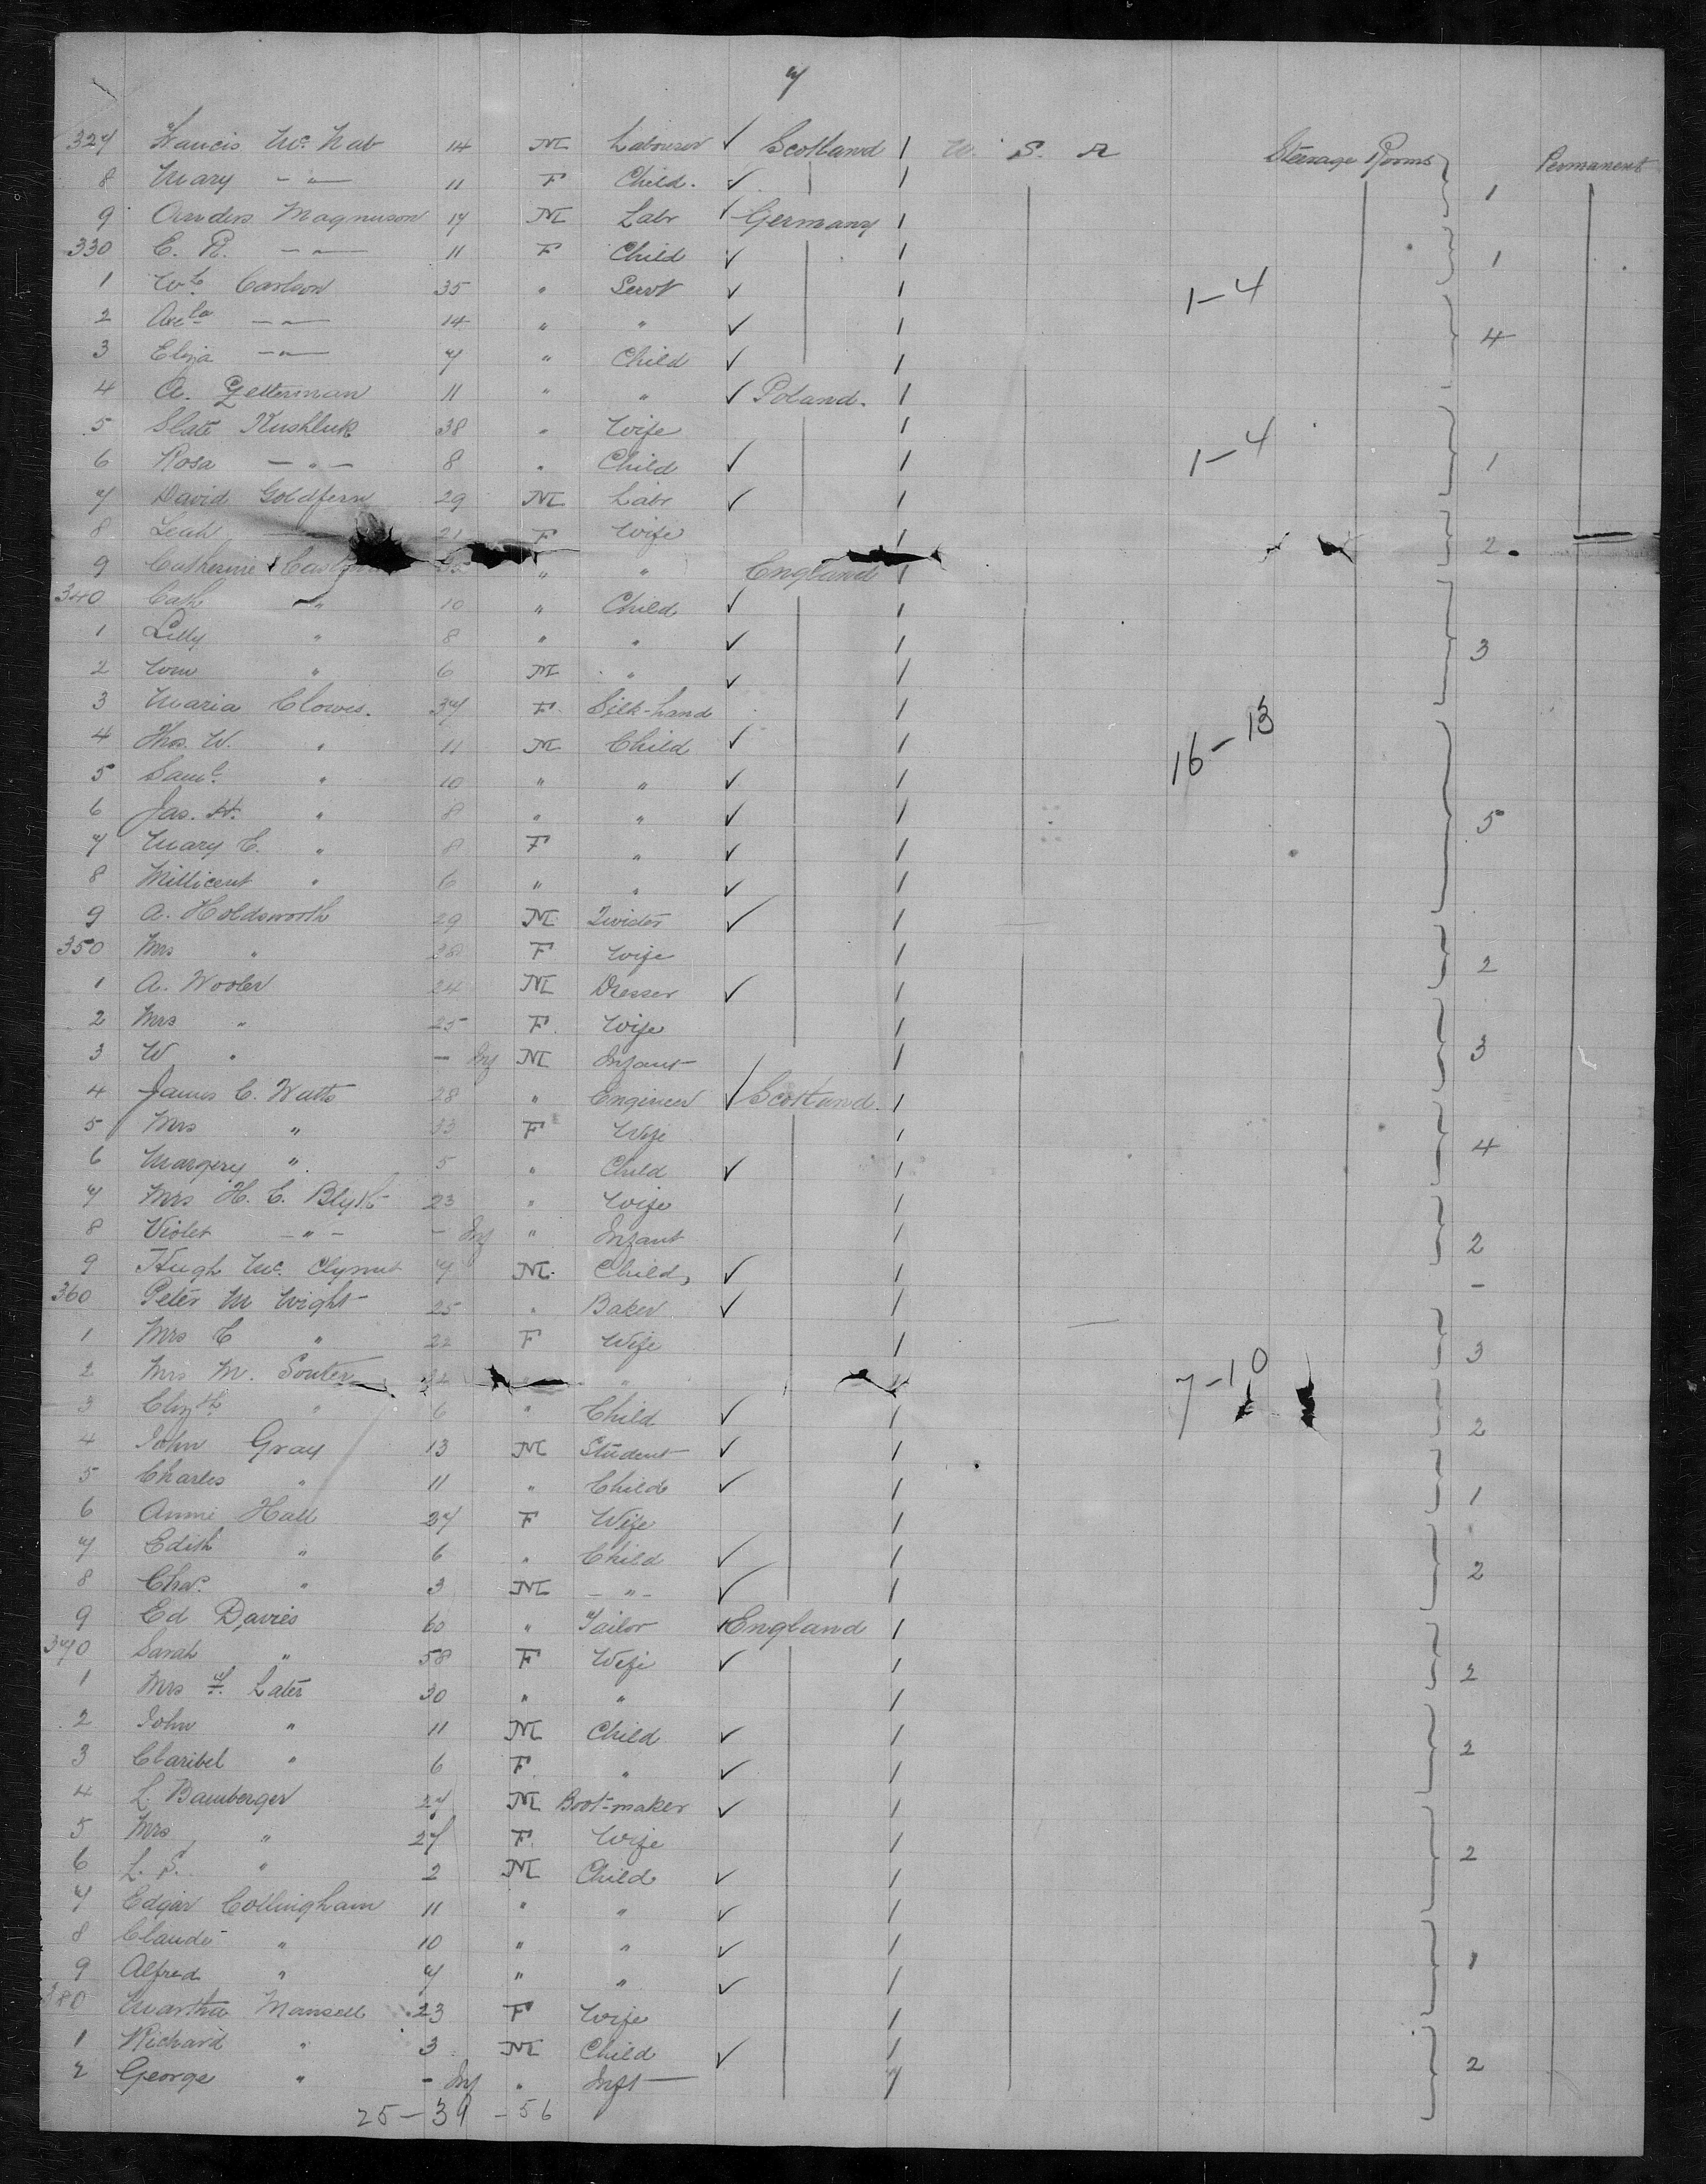 7
327 Francis Mc Nab 14 M Labourer ✓ Scotland / U. S. A Steerage Rooms Permanent
8 Mary - " - 11 F Child. ✓ / 1
9 Anders Magnuson 17 M Labr ✓ Germany /
330 E. R. - " - 11 F Child ✓ / 1
1 Carlson 35 " Servt ✓ / 1-4
2 - " - 14 " " ✓ / 4
3 Eliza - " - 7 " Child ✓ /
4 A. Zetterman 11 " " ✓ Poland. /
5 Slate Kushluk 38 " Wife /
6 Rosa - " - 8 " Child ✓ / 1-4 1
7 David Goldfern 29 M Labr ✓ /
8 Leah 21 F Wife / 2
9 Catherine 35 " " England /
340 Cath " 10 " Child ✓ /
1 Lilly " 8 " " ✓ / 3
2 Wm " 6 M " ✓ /
3 Maria Clowes. 37 F. Silk-hand /
4 Thos. W. " 11 M Child ✓ / 16-13
5 Saml. " 10 " " ✓ /
6 Jas. H. " 8 " " ✓ / 5
7 Mary E. " 8 F " ✓ /
8 Millicent " 6 " " ✓ /
9 A. Holdsworth 29 M. Twister ✓ /
350 Mrs " 30 F Wife / 2
1 A. Wooler 24 M Dresser ✓ /
2 Mrs " 25 F. Wife /
3 W " - Inf M Infant / 3
4 James C. Watts 28 " Engineer ✓ Scotland. /
5 Mrs " 33 F Wife / 4
6 Margery " 5 " Child ✓ /
7 Mrs H. E. Blyth 23 " Wife /
8 Violet - " - - Inf " Infant / 2
9 Hugh Mc. Clymnt 7 M. Child, ✓ / -
360 Peter M Wight 25 " Baker ✓ /
1 Mrs E " 22 F Wife / 3
2 Mrs M. Souter 32 " " / 7-10
3 " 6 " Child ✓ / 2
4 John Gray 13 M Student ✓ /
5 Charles " 11 " Child ✓ / 1
6 Annie Hall 27 F Wife /
7 Edith " 6 " Child ✓ / 2
8 Chas. " 3 M - " - ✓ /
9 Ed Davies 60 " Tailor ✓ England /
370 Sarah " 58 F Wife ✓ / 2
1 Mrs Later 30 " " /
2 John " 11 M Child ✓ / 2
3 Claribel " 6 F. " ✓ /
4 L. Bamberger 27 M Boot-maker ✓ /
5 Mrs " 27 F. Wife / 2
6 L. S. " 2 M Child ✓ /
7 Edgar Collingham 11 " " ✓ /
8 Claude " 10 " " ✓ / 1
9 Alfred " 7 " " ✓ /
380 Martha Mansell 23 F Wife /
1 Richard " 3 M Child ✓ / 2
2 George " - Inf " Inft /
25-39-56